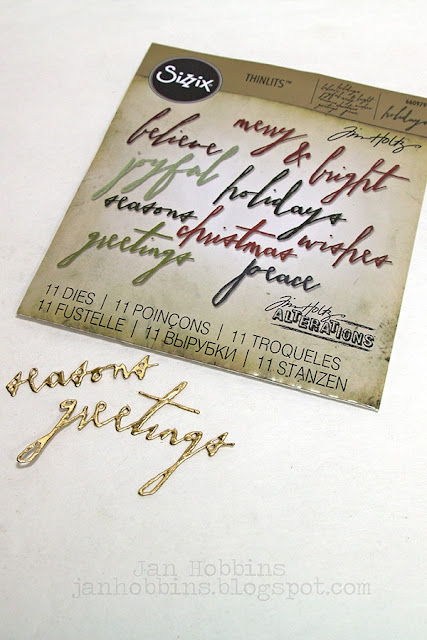 Sizzix
THINLITS™
holidays
Tim Holtz
believe
merry & bright
joyful
holidays
seasons
christmas
wishes
greetings
peace
11 DIES | 11 POINÇONS | 11 TROQUELES
11 FUSTELLE | 11 ВЫРУБКИ | 11 STANZEN
Tim Holtz
ALTERATIONS
seasons
greetings
Jan Hobbins
janhobbins.blogspot.com